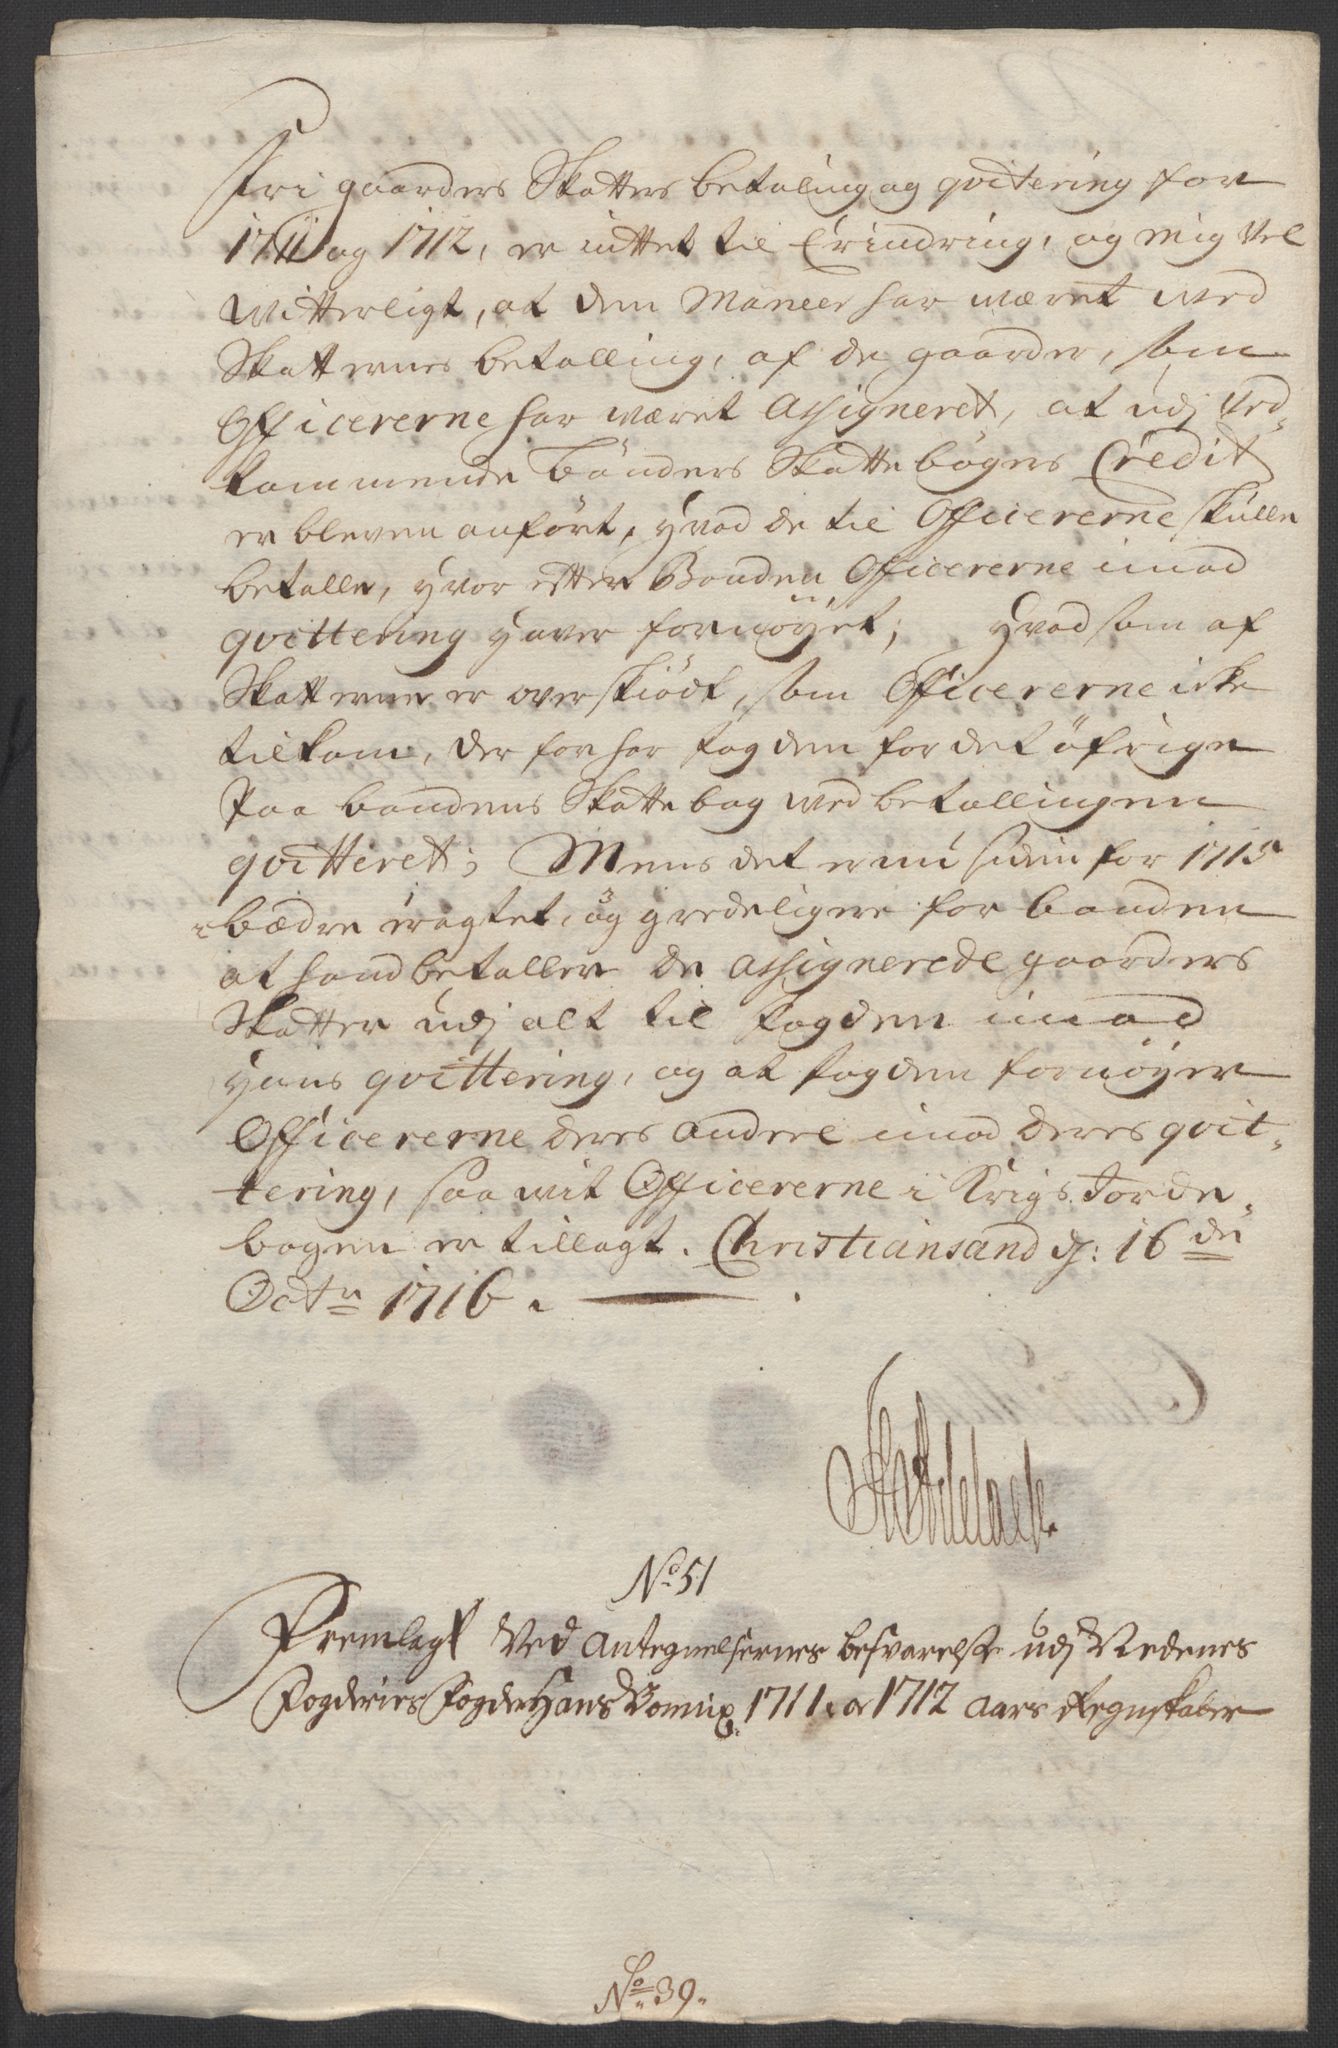 Fri gaarders Skatters betaling og qvitering for
1711 og 1712, er intet til Erindring, og mig Vel
witterligt, at dem Maneer har wæret med
Skatternes betalling, af de gaarder, som
Officererne har wæret Assigneret, at udj ved-
kommende bönders Skattebögers Credit
er bleven anfört, hvad de til Officererne skulle
betalle, hvor efter Bonden Officererne imod
qvittering haver fornöyet; Hvad som af
Skatterne er overskiödt, som Officererne icke
tilkom, der for har fogden for det öfrige
Paa bondens Skattebog wed betallingen
qvitteret; Mens det er nu siden for 1715
bædre eragtet, og gredeligere for bonden
at hand betaller de assignerede gaarders
Skatter udj alt til fogden imod
hans qvittering, og at fogden fornöyer
Officererne deres andeel imod deres qvit-
tering, saa wit Officererne i Krigs Jorde-
bogen er tillagt. Christiansand d: 16 de
Octr 1716.
No 51
Fremlagt Ved Antegnelsernes besvarelse udj Nedenes
Fogderies Fogde Hans 1711 og 1712 Aars Regnskaber
No 39.